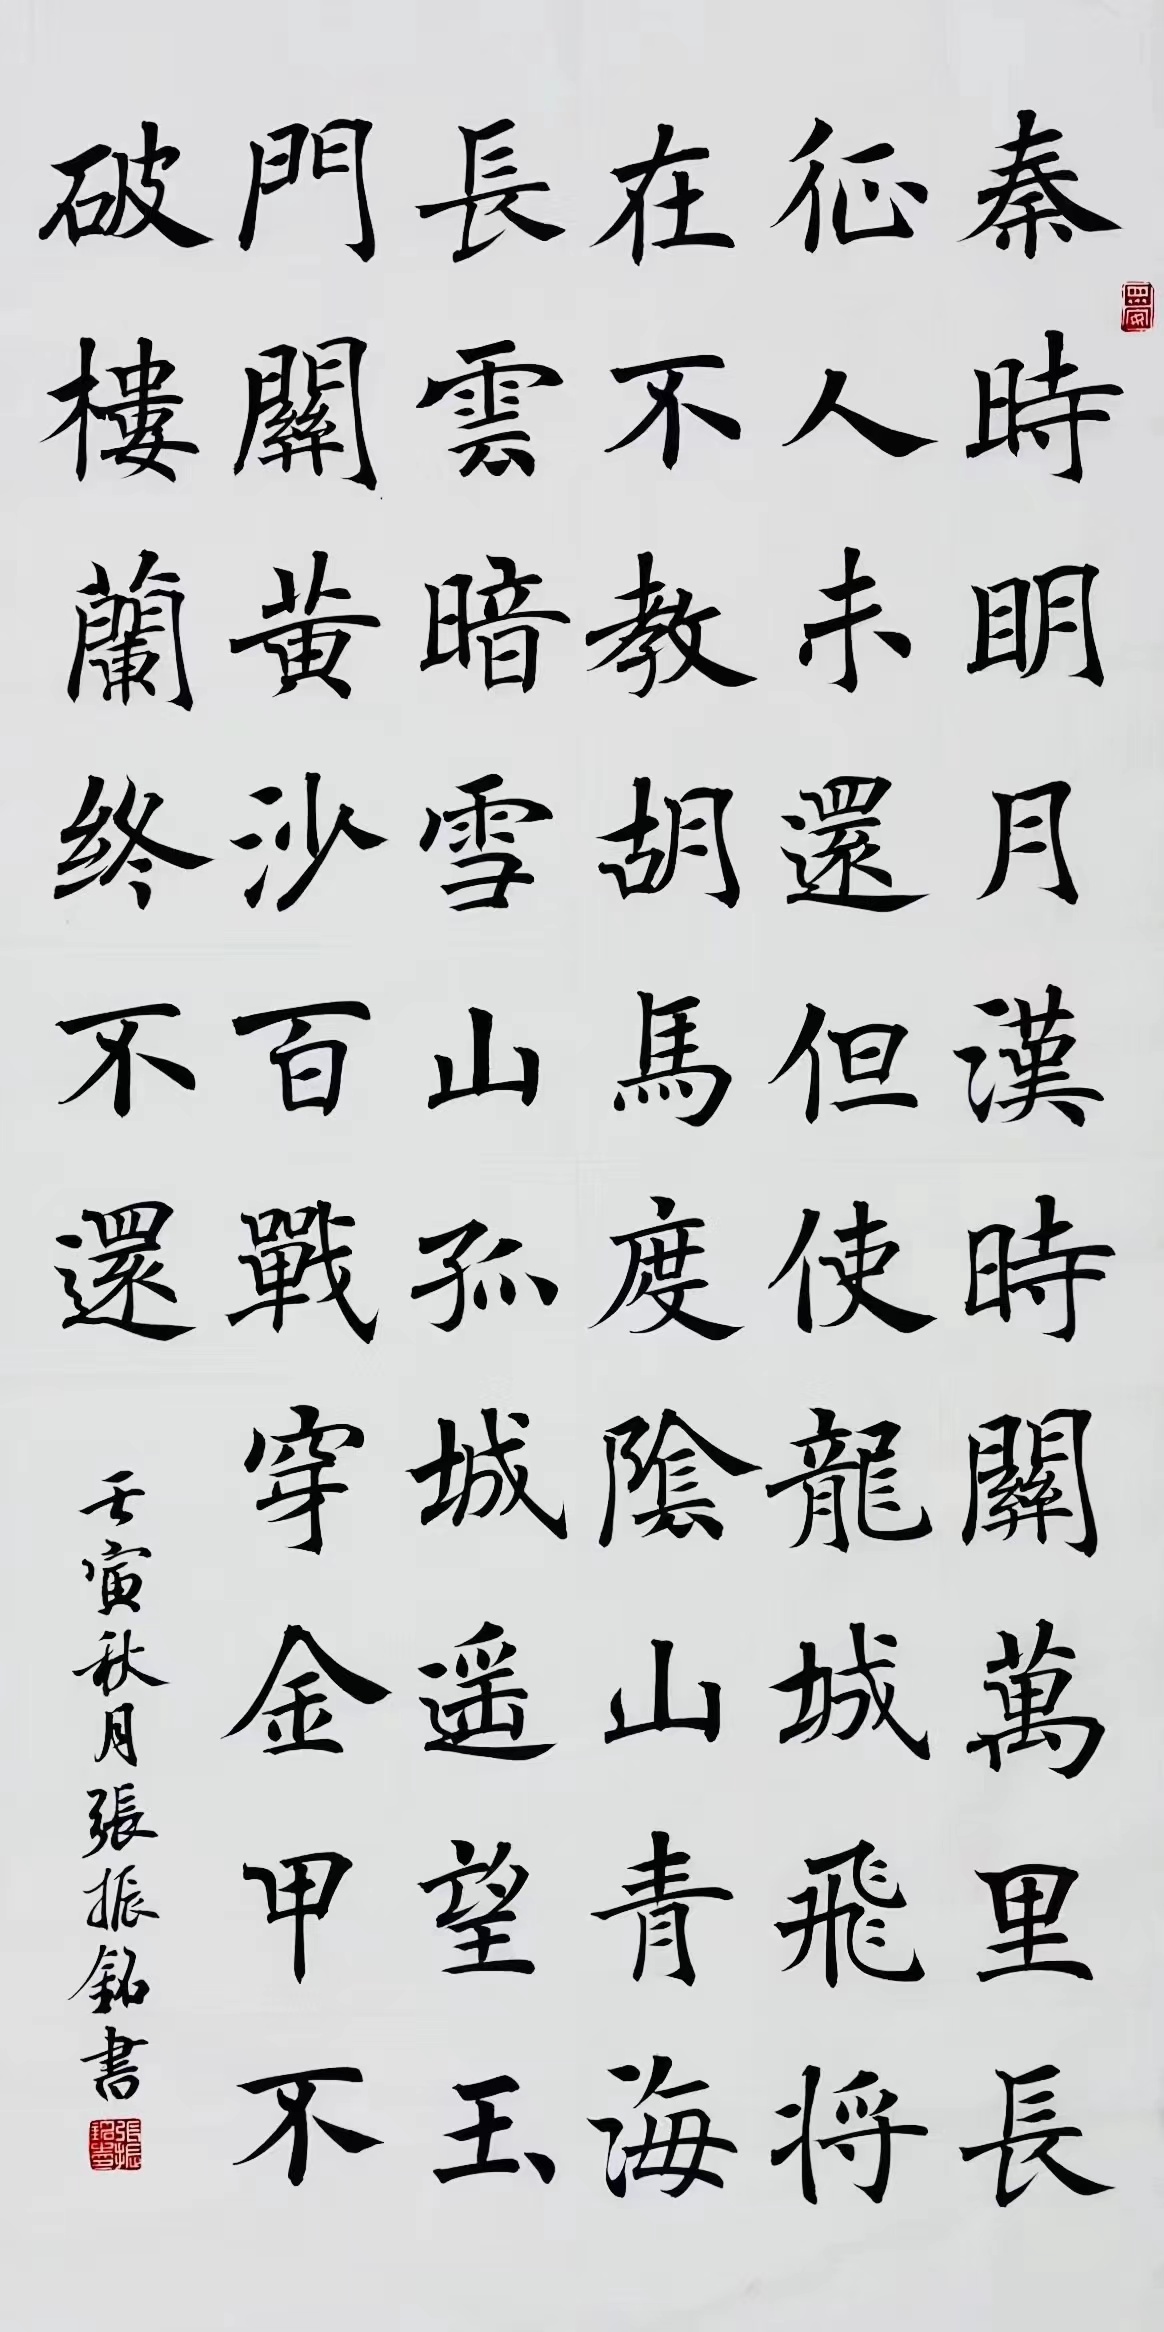 秦時眀月漢時關萬里長
征人未還但使龍城飛将
在不教胡馬度隂山青海
長雲暗雪山孤城遥望玉
門關黄沙百戰穿金甲不
破樓蘭终不還
壬寅秋月張振銘書